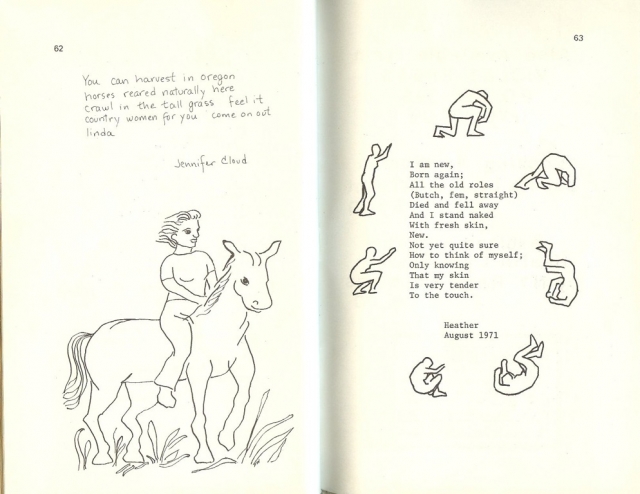 62
You can harvest in oregon
horses reared naturally here
crawl in the tall grass feel it
country women for you come on out
linda
Jennifer Cloud
63
I am new,
Born again;
All the old roles
(Butch, fem, straight)
Died and fell away
And I stand naked
With fresh skin,
New.
Not yet quite sure
How to think of myself;
Only knowing
That my skin
Is very tender
To the touch.
Heather
August 1971